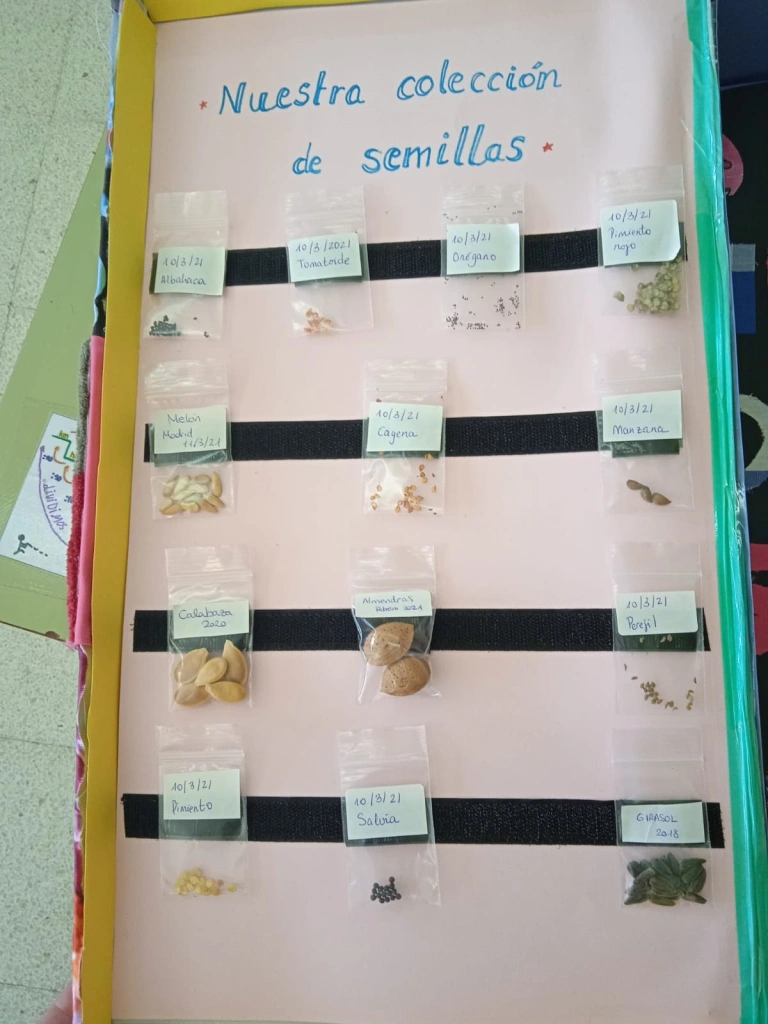 Nuestra colección
de semillas
10/3/21
Albahaca
10/3/2021
Tomatoide
10/3/21
Orégano
10/3/21
Pimiento
rojo
Melón
Madrid
11/3/21
10/3/21
Cayena
10/3/21
Manzana
Calabaza
2020
Almendras
Febrero 2021
10/3/21
Perejil
10/3/21
Pimiento
10/3/21
Salvia
GIRASOL
2018
dividimos